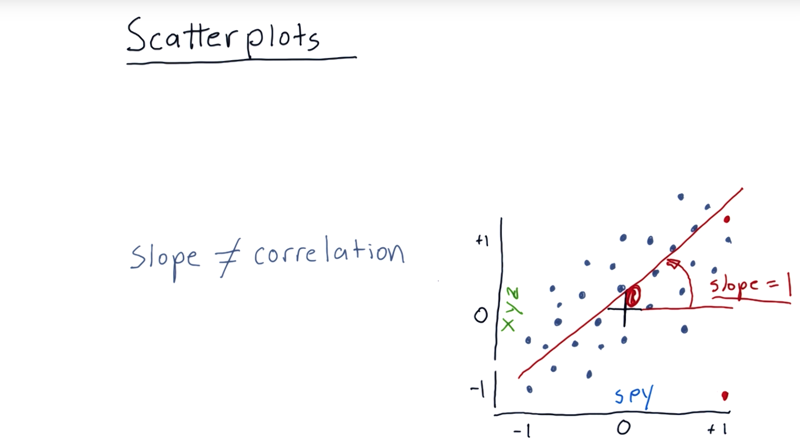 Scatterplots
slope ≠ correlation
+1
0
-1
XYZ
slope = 1
SPY
-1
0
+1